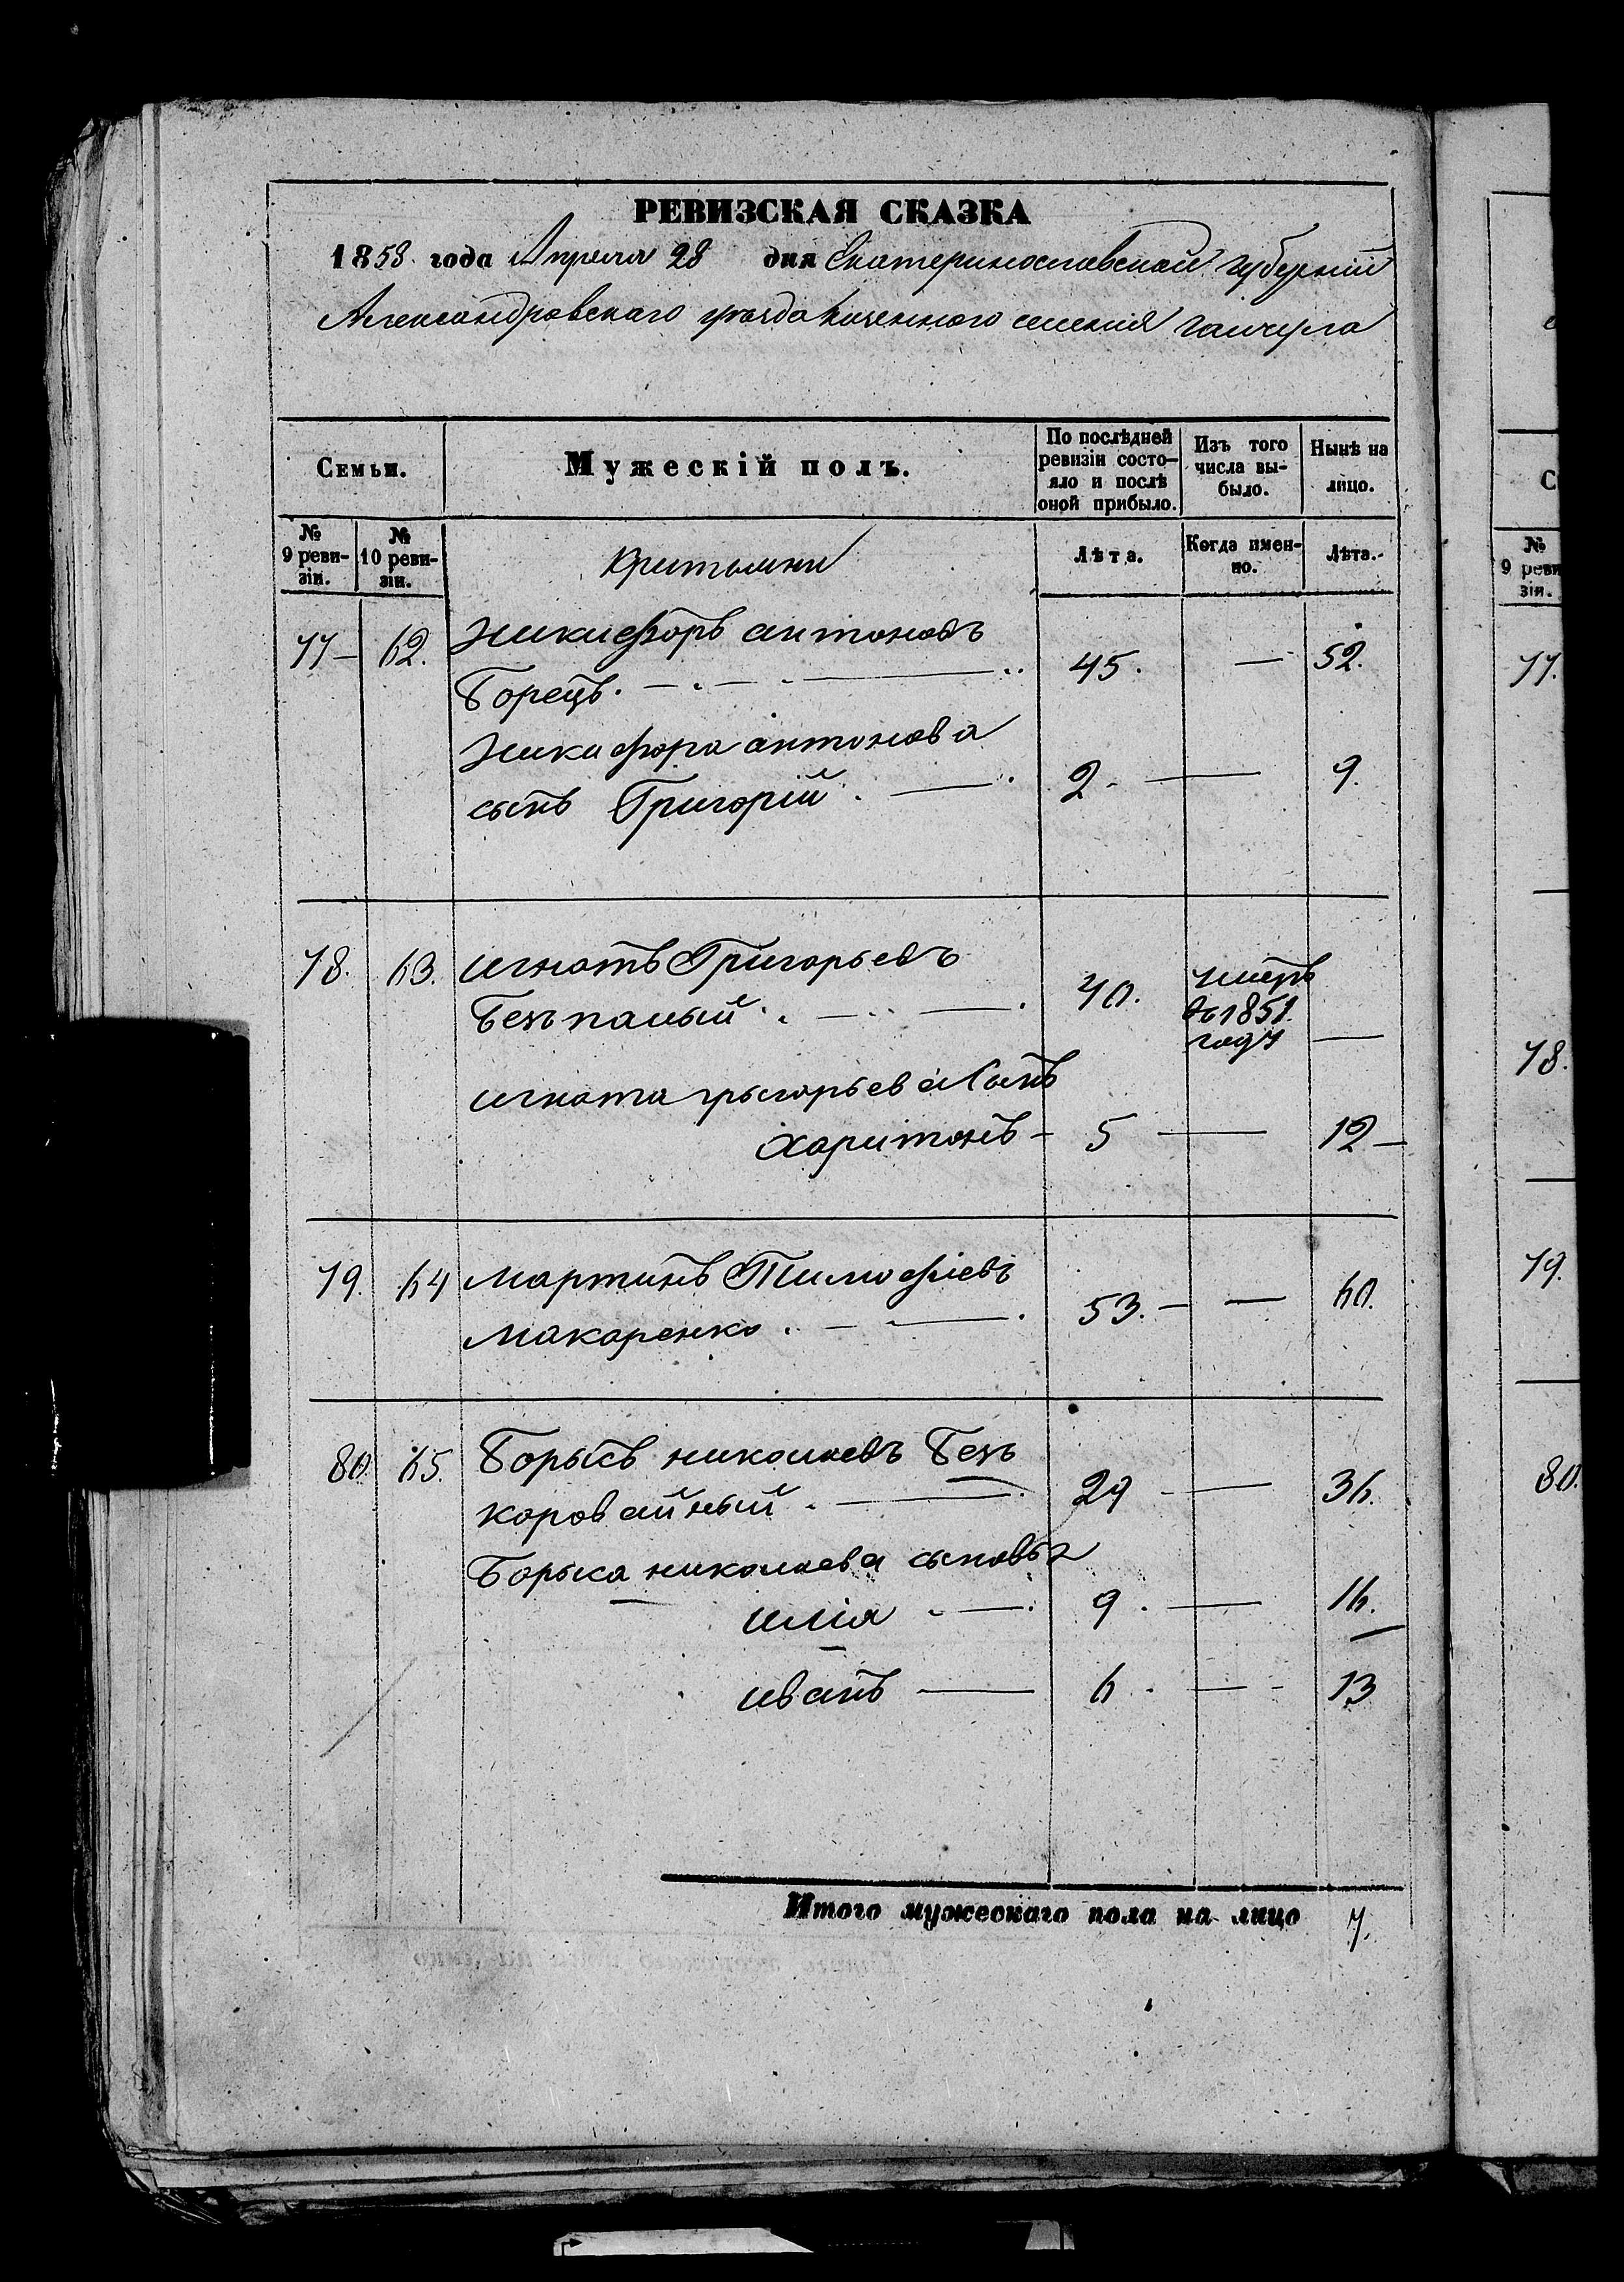 РЕВИЗСКАЯ СКАЗКА
1858 года Апреля 28 дня Екатеринославской губернии
Александровскаго уезда казенного селения Гайчула
Семьи. Мужескій полъ. По послѣдней ревизіи состояло и послѣ оной прибыло. Изъ того числа выбыло. Нынѣ на лицо.
№ 9 ревизіи. № 10 ревизіи. Лѣта. Когда именно. Лѣта.
77 62. Никифоръ антоновъ
Борецъ. 45. — 52.
Никифора антонова
сынъ Григорій. 2 — 9.
78. 63. игнатъ Григорьевъ
Безпалый. 40. умеръ въ 1851 году —
игната григорьева сынъ
Харитонъ 5 — 12
79. 64 мартинъ Тимофіевъ
макаренко. 53. — 60.
80. 65. Борысъ николаевъ Безъ
коровайный. 29 — 36.
Борыса николаева сыновья
илія 9. — 16.
иванъ 6. — 13
Итого мужескаго пола на лицо 7.
№ 9 реви зіи.
77.
78.
79.
80.